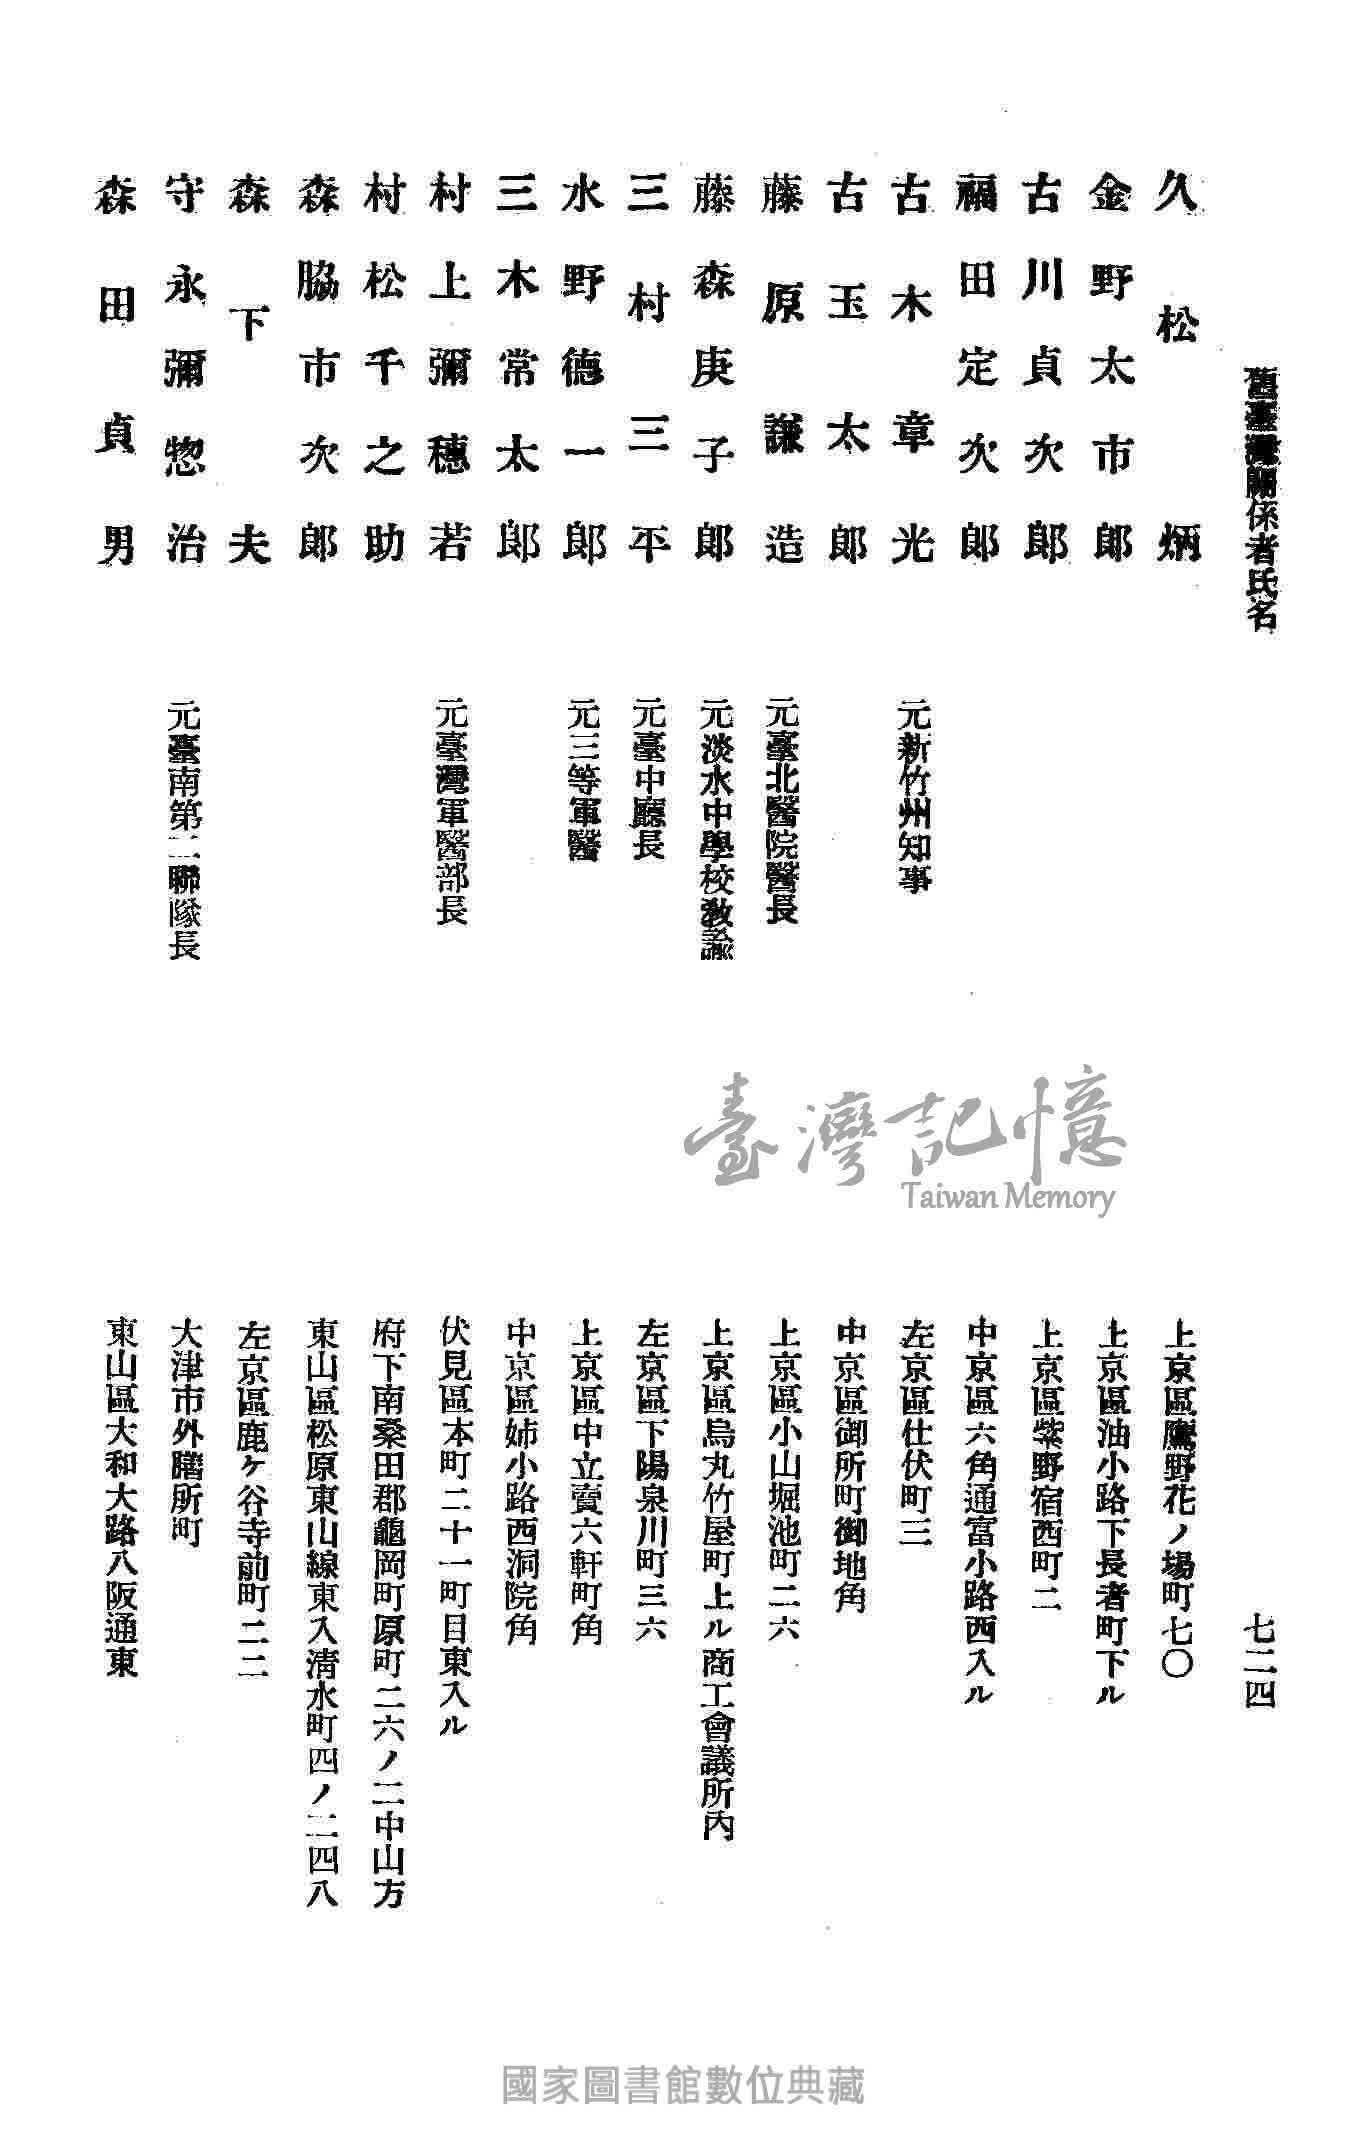 舊臺灣關係者氏名
七二四
久松炳
上京區鷹野花ノ場町七〇
金野太市郎
上京區油小路下長者町下ル
古川貞次郎
上京區紫野宿西町二
福田定次郎
中京區六角通富小路西入ル
古木章光
元新竹州知事
左京區仕伏町三
古玉太郎
中京區御所町御地角
藤原謙造
元臺北醫院醫長
上京區小山堀池町二六
藤森庚子郎
元淡水中學校教諭
上京區烏丸竹屋町上ル商工會議所內
三村三平
元臺中廳長
左京區下陽泉川町三六
水野德一郎
元三等軍醫
上京區中立賣六軒町角
三木常太郎
中京區姉小路西洞院角
村上彌穗若
元臺灣軍醫部長
伏見區本町二十一町目東入ル
村松千之助
府下南桑田郡龜岡町原町二六ノ二中山方
森脇市次郎
東山區松原東山線東入清水町四ノ二四八
森下夫
左京區鹿ヶ谷寺前町二二
守永彌惣治
元臺南第二聯隊長
大津市外膳所町
森田貞男
東山區大和大路八阪通東
臺灣記憶
Taiwan Memory
國家圖書館數位典藏